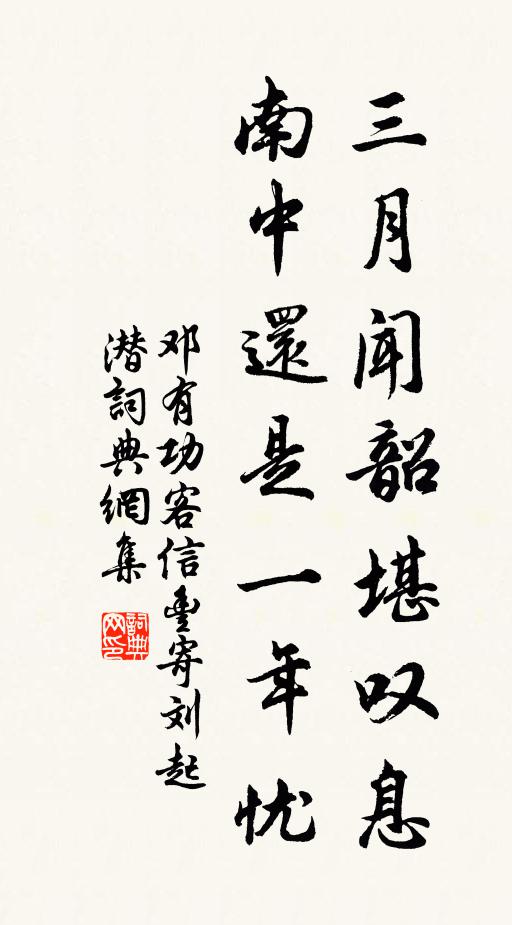 三月闻韶堪叹息
南中還是一年忧
邓有功客信豊寄刘起
潜詞典網集
詞典
网印